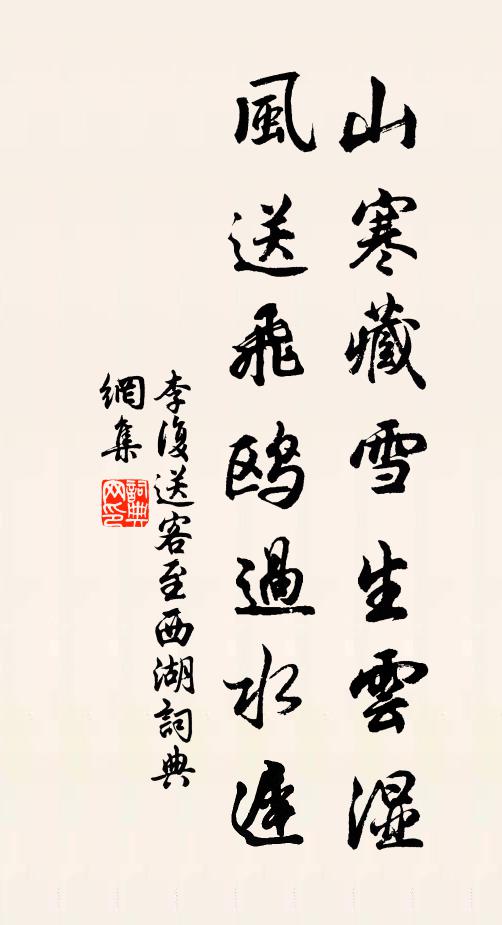 山寒藏雪生雲湿
風送飛鸥過水遲
李復送客至西湖詞典
網集
詞典網印